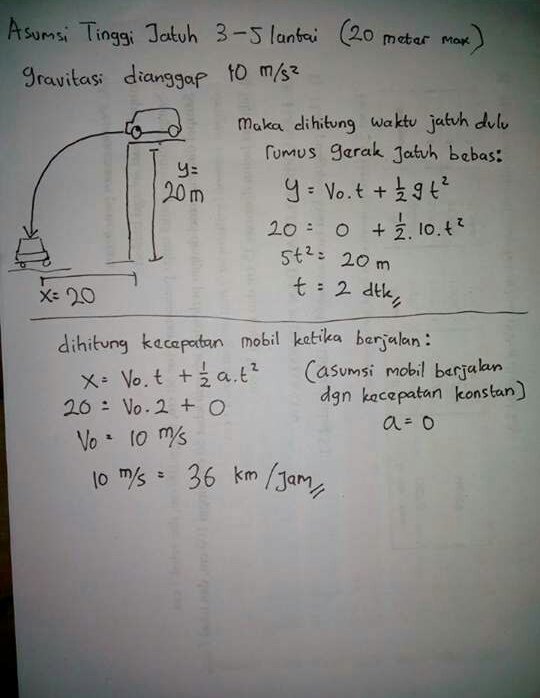 Asumsi Tinggi Jatuh 3-5 lantai (20 meter max)
gravitasi dianggap 10 m/s²
y=
20 m
x= 20
Maka dihitung waktu jatuh dulu
rumus gerak Jatuh bebas:
y = Vo.t + ½ g t²
20 = 0 + ½. 10. t²
5t² = 20 m
t = 2 dtk
dihitung kecepatan mobil ketika berjalan:
x = Vo.t + ½ a.t²
20 = Vo. 2 + 0
Vo = 10 m/s
10 m/s = 36 km/Jam
(asumsi mobil berjalan
dgn kecepatan konstan)
a = 0